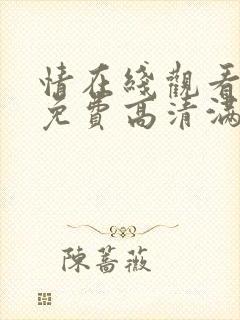 情在綫觀看
免費高清滿
陳薔薇